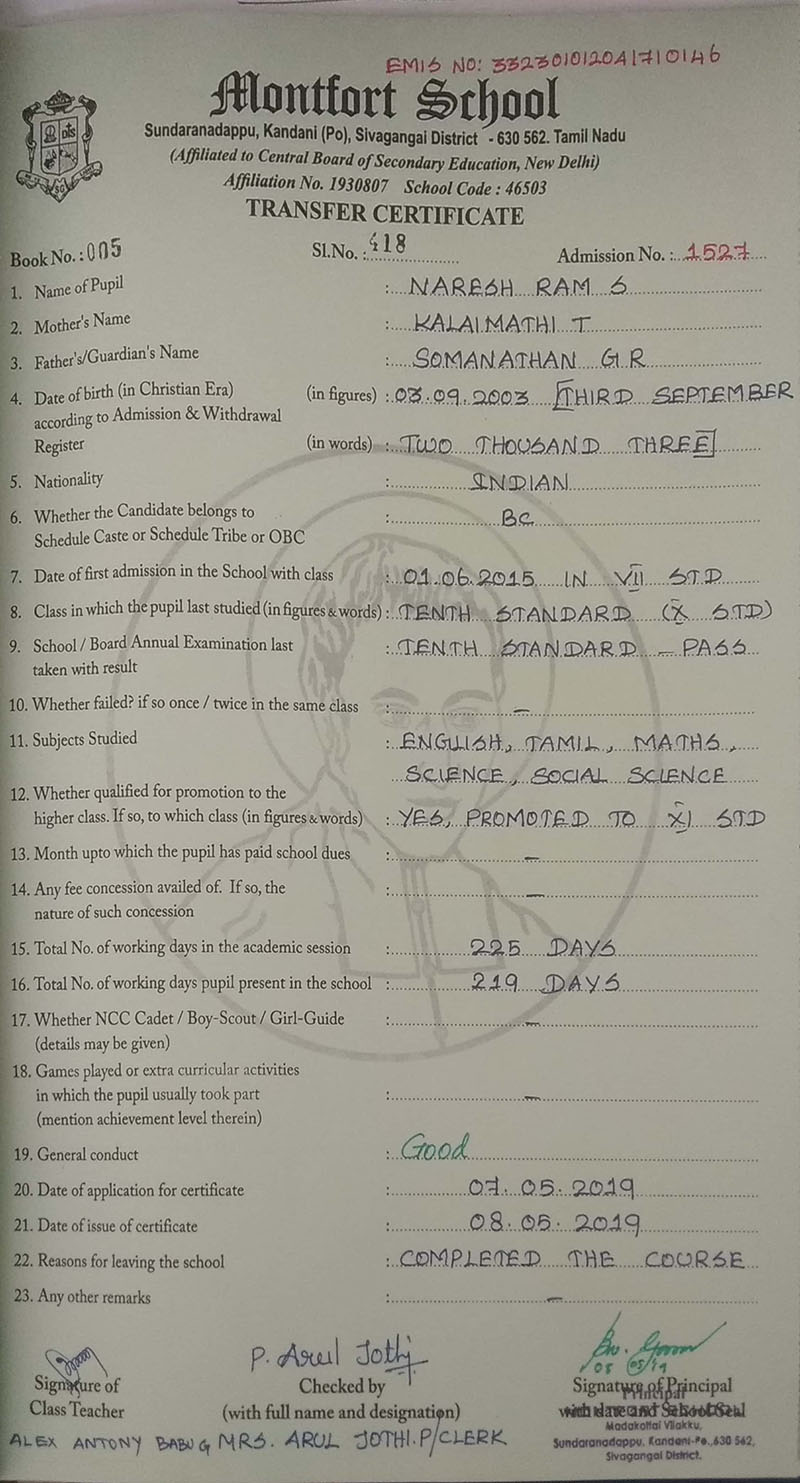 EMIS NO: 332301012041710146
Montfort School
Sundaranadappu, Kandani (Po), Sivagangai District - 630 562. Tamil Nadu
(Affiliated to Central Board of Secondary Education, New Delhi)
Affiliation No. 1930807 School Code : 46503
TRANSFER CERTIFICATE
Book No. : 005 Sl.No. : 418 Admission No. : 1527
1. Name of Pupil : NARESH RAM S
2. Mother's Name : KALAIMATHI T
3. Father's/Guardian's Name : SOMANATHAN G.R
4. Date of birth (in Christian Era) (in figures) : 03.09.2003 [THIRD SEPTEMBER
according to Admission & Withdrawal
Register (in words) : TWO THOUSAND THREE]
5. Nationality : INDIAN
6. Whether the Candidate belongs to : BC
Schedule Caste or Schedule Tribe or OBC
7. Date of first admission in the School with class : 01.06.2015 IN VII STD
8. Class in which the pupil last studied (in figures & words) : TENTH STANDARD (X STD)
9. School / Board Annual Examination last : TENTH STANDARD - PASS
taken with result
10. Whether failed? if so once / twice in the same class : -
11. Subjects Studied : ENGLISH, TAMIL, MATHS,
SCIENCE, SOCIAL SCIENCE
12. Whether qualified for promotion to the
higher class. If so, to which class (in figures & words) : YES, PROMOTED TO XI STD
13. Month upto which the pupil has paid school dues : -
14. Any fee concession availed of. If so, the : -
nature of such concession
15. Total No. of working days in the academic session : 225 DAYS
16. Total No. of working days pupil present in the school : 219 DAYS
17. Whether NCC Cadet / Boy-Scout / Girl-Guide : -
(details may be given)
18. Games played or extra curricular activities
in which the pupil usually took part : -
(mention achievement level therein)
19. General conduct : Good
20. Date of application for certificate : 07.05.2019
21. Date of issue of certificate : 08.05.2019
22. Reasons for leaving the school : COMPLETED THE COURSE
23. Any other remarks : -
P. Arul Jothi
08/05/19
Signature of Checked by Signature of Principal
Principal
Class Teacher (with full name and designation) with date and School Seal
Madakottai Vilakku,
ALEX ANTONY BABU G MRS. ARUL JOTHI.P/CLERK
Sundaranadappu, Kandani-Po.,630 562,
Sivagangai District.